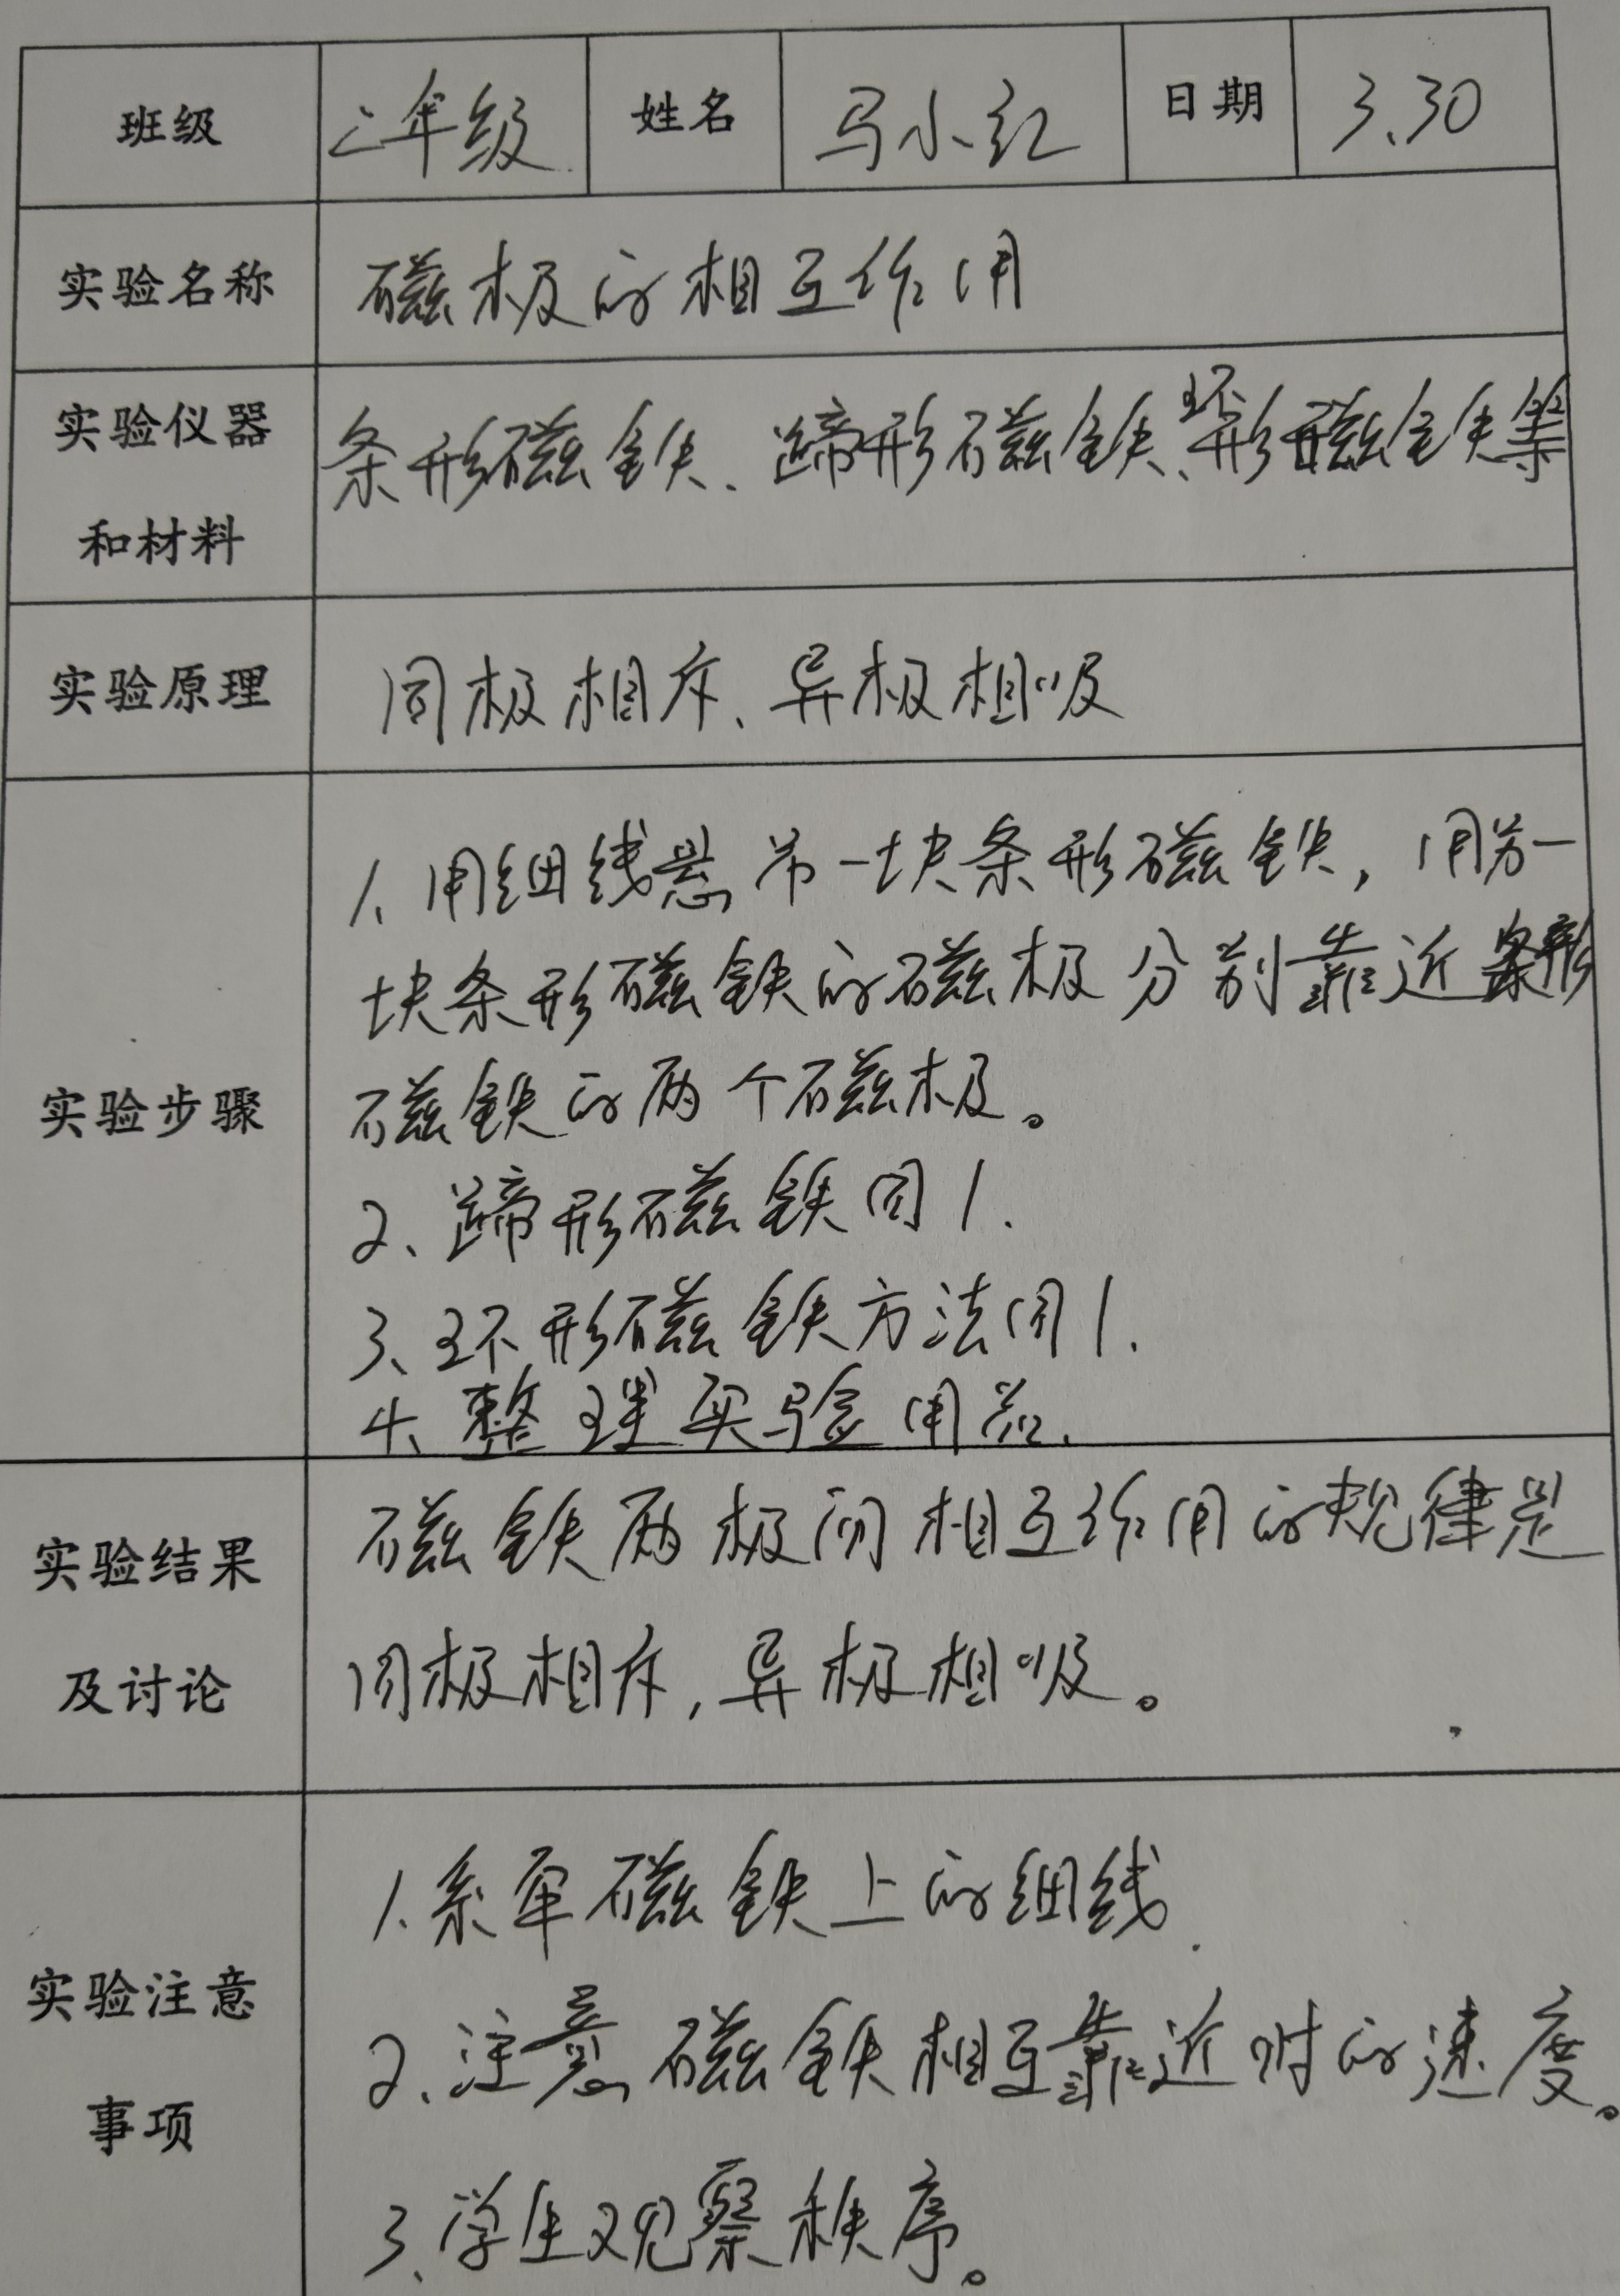 班级 二年级 姓名 马小红 日期 3.30
实验名称 磁极的相互作用
实验仪器 条形磁铁、蹄形磁铁、环形磁铁等
和材料
实验原理 同极相斥、异极相吸
1、用细线悬吊一块条形磁铁，用另一
块条形磁铁的磁极分别靠近条形
实验步骤 磁铁的两个磁极。
2、蹄形磁铁同1.
3、环形磁铁方法同1.
4、整理实验用品.
实验结果 磁铁两极间相互作用的规律是
及讨论 同极相斥，异极相吸。
1.系牢磁铁上的细线.
实验注意 2.注意磁铁相互靠近时的速度。
事项
3、学生观察秩序。